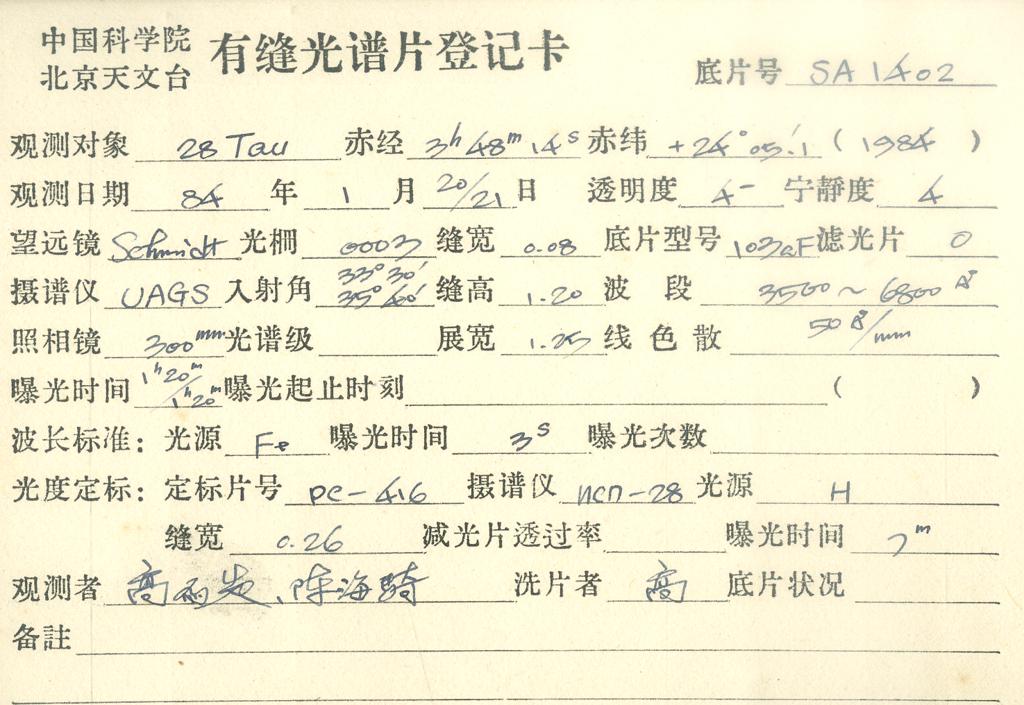 中国科学院
北京天文台
有缝光谱片登记卡
底片号 SA 1402
观测对象 28 Tau 赤经 3h 48m 14s 赤纬 +24° 05.'1 (1984)
观测日期 84 年 1 月 20/21 日 透明度 4- 宁静度 4
望远镜 Schmidt 光栅 0003 缝宽 0.08 底片型号 103aF 滤光片 0
摄谱仪 UAGS 入射角 33°30' 35°40' 缝高 1.20 波段 3500~6800 Å
照相镜 300mm 光谱级 展宽 1.25 线色散 50 Å/mm
曝光时间 1h20m/1h20m 曝光起止时刻 ( )
波长标准: 光源 Fe 曝光时间 3s 曝光次数
光度定标: 定标片号 PC-416 摄谱仪 ИСП-28 光源 H
缝宽 0.26 减光片透过率 曝光时间 7m
观测者 高 、陈海骑 洗片者 高 底片状况
备註